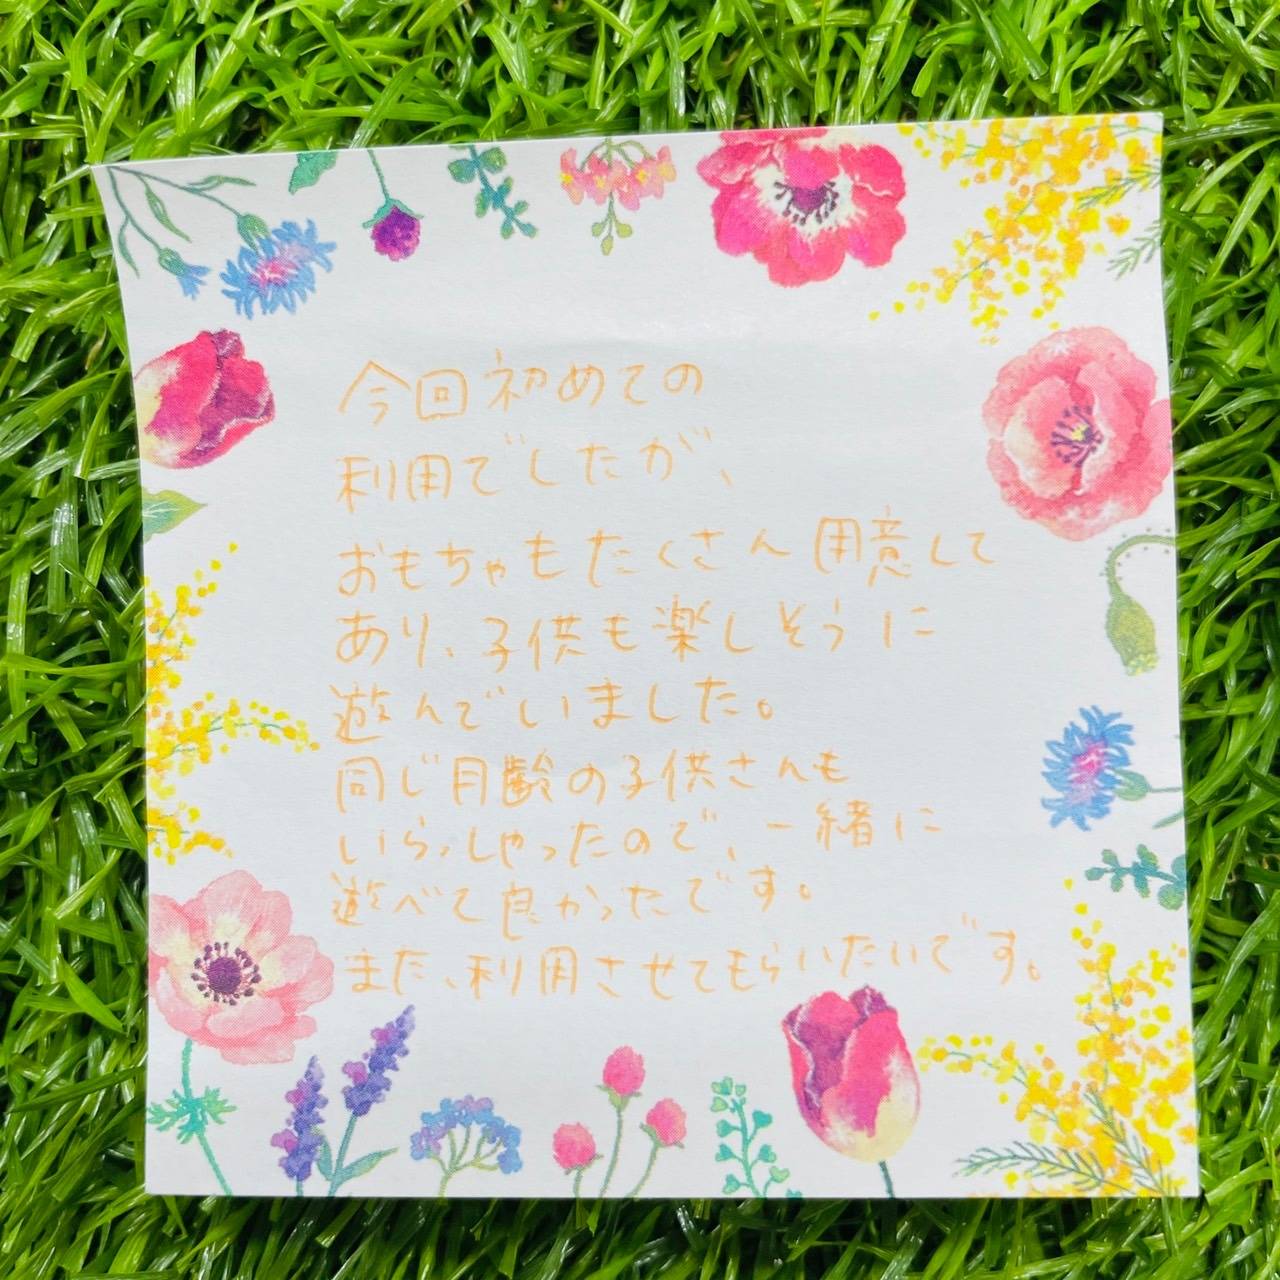 今回初めての
利用でしたが、
おもちゃもたくさん用意して
あり、子供も楽しそうに
遊んでいました。
同じ月齢の子供さんも
いらっしゃったので、一緒に
遊べて良かったです。
また、利用させてもらいたいです。